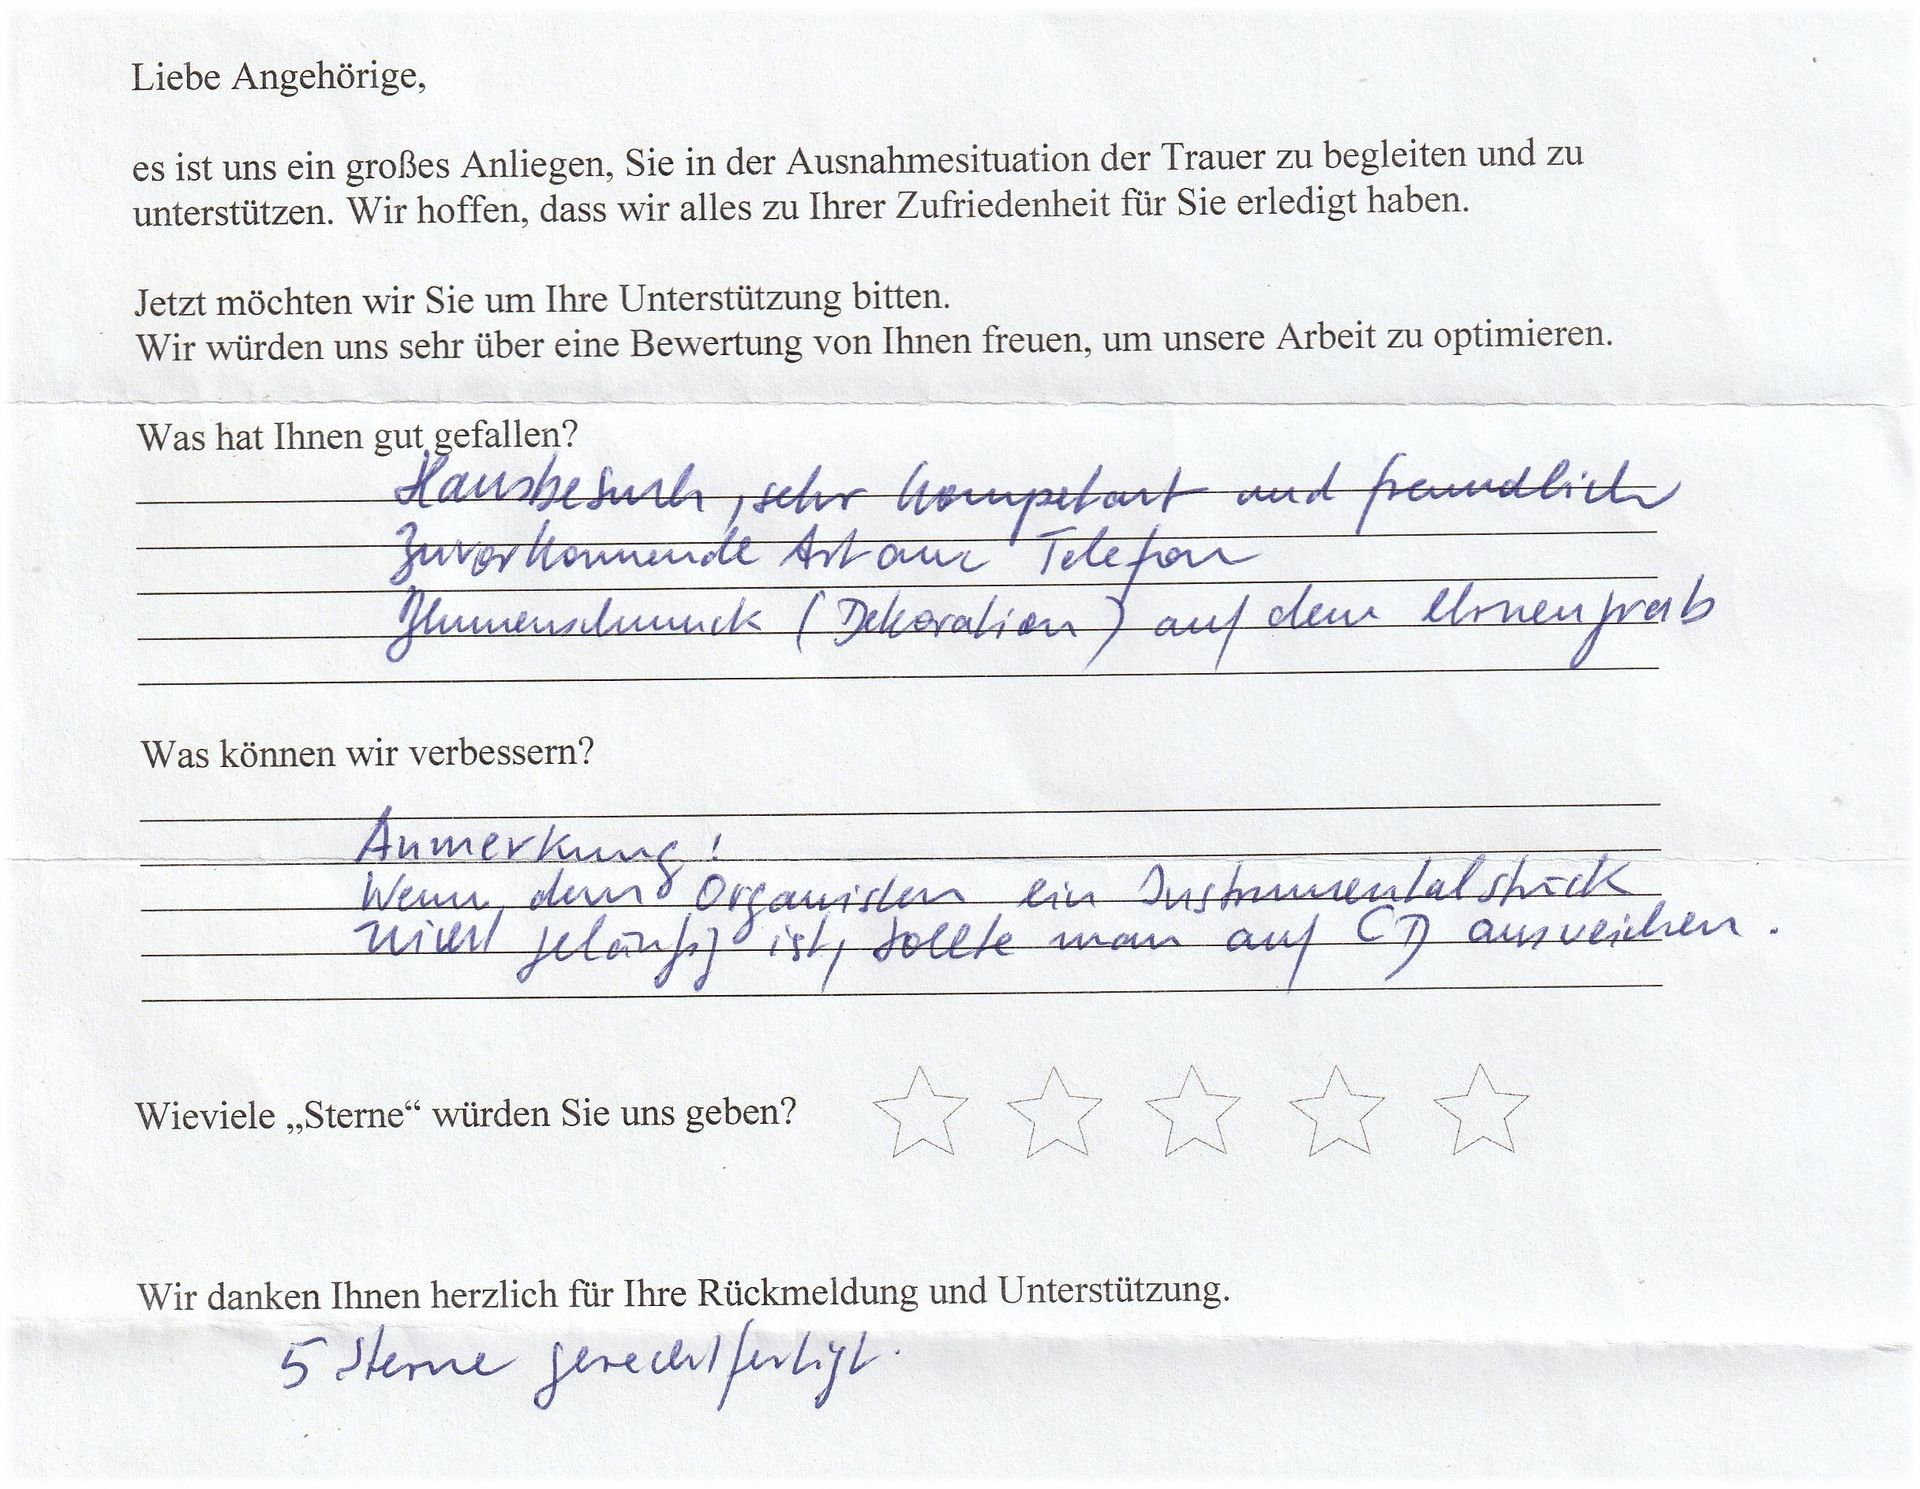 Liebe Angehörige,
es ist uns ein großes Anliegen, Sie in der Ausnahmesituation der Trauer zu begleiten und zu
unterstützen. Wir hoffen, dass wir alles zu Ihrer Zufriedenheit für Sie erledigt haben.
Jetzt möchten wir Sie um Ihre Unterstützung bitten.
Wir würden uns sehr über eine Bewertung von Ihnen freuen, um unsere Arbeit zu optimieren.
Was hat Ihnen gut gefallen?
Hausbesuch, sehr kompetent und freundlich
Zuvorkommende Art am Telefon
Blumenschmuck (Dekoration) auf dem Urnengrab
Was können wir verbessern?
Anmerkung!
Wenn dem Organisten ein Instrumentalstück
nicht geläufig ist, sollte man auf CD ausweichen.
Wieviele „Sterne“ würden Sie uns geben?
Wir danken Ihnen herzlich für Ihre Rückmeldung und Unterstützung.
5 Sterne gerechtfertigt.